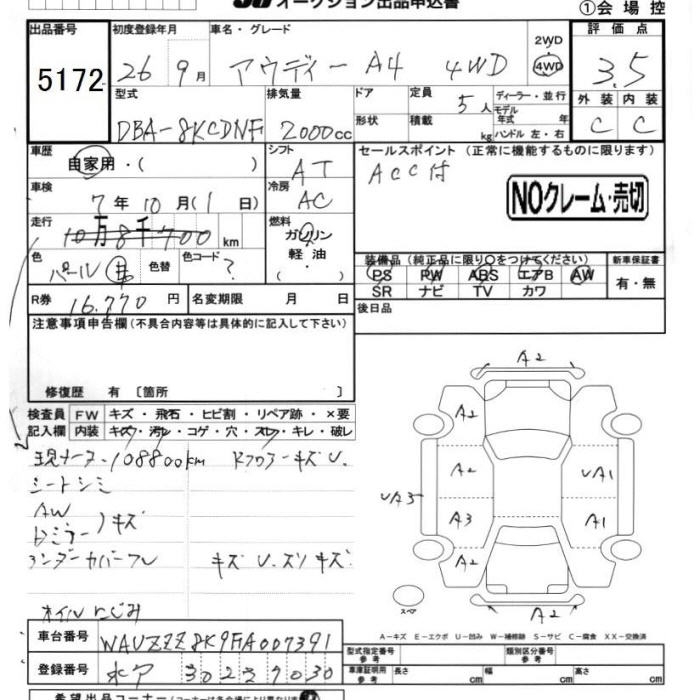 オークション出品申込書
①会場控
出品番号
5172
初度登録年月
26 9月
車名・グレード
アウディー A4 4WD
2WD
4WD
評価点
3.5
外装 内装
C C
型式
DBA-8KCDNF
排気量
2000cc
ドア
形状
定員
5人
積載
kg
ディーラー・並行
モデル年式 年
ハンドル 左・右
車歴
自家用・( )
シフト
AT
セールスポイント (正常に機能するものに限ります)
ACC付
NOクレーム・売切
車検
7年10月(1日)
冷房
AC
走行
10万8千700km
燃料
ガソリン
軽油
色
パール
色替
色コード
?
装備品 (純正品に限り○をつけてください)
PS PW ABS エアB AW
SR ナビ TV カワ
新車保証書
有・無
R券
16,770円
名変期限 月 日
後日品
注意事項申告欄(不具合内容等は具体的に記入して下さい)
修復歴 有 〔箇所 〕
検査員記入欄
FW キズ・飛石・ヒビ割・リペア跡・×要
内装 キズ・汚レ・コゲ・穴・スレ・キレ・破レ
108800km
キズ U.
シートシミ
AW
ドミラー)キズ
アンダーカバーワレ キズ U. スリキズ
オイルにじみ
A2
A2
A2
UA1
UA3
A3
A1
A2
A2
スペア
A-キズ E-エクボ U-凹み W-補修跡 S-サビ C-腐食 XX-交換済
車台番号
WAUZZZ8K9FA007391
登録番号
302
30
型式指定番号
参考
類別区分番号
参考
車庫証明用
参考
長さ cm
幅 cm
高さ cm
希望出品コーナー